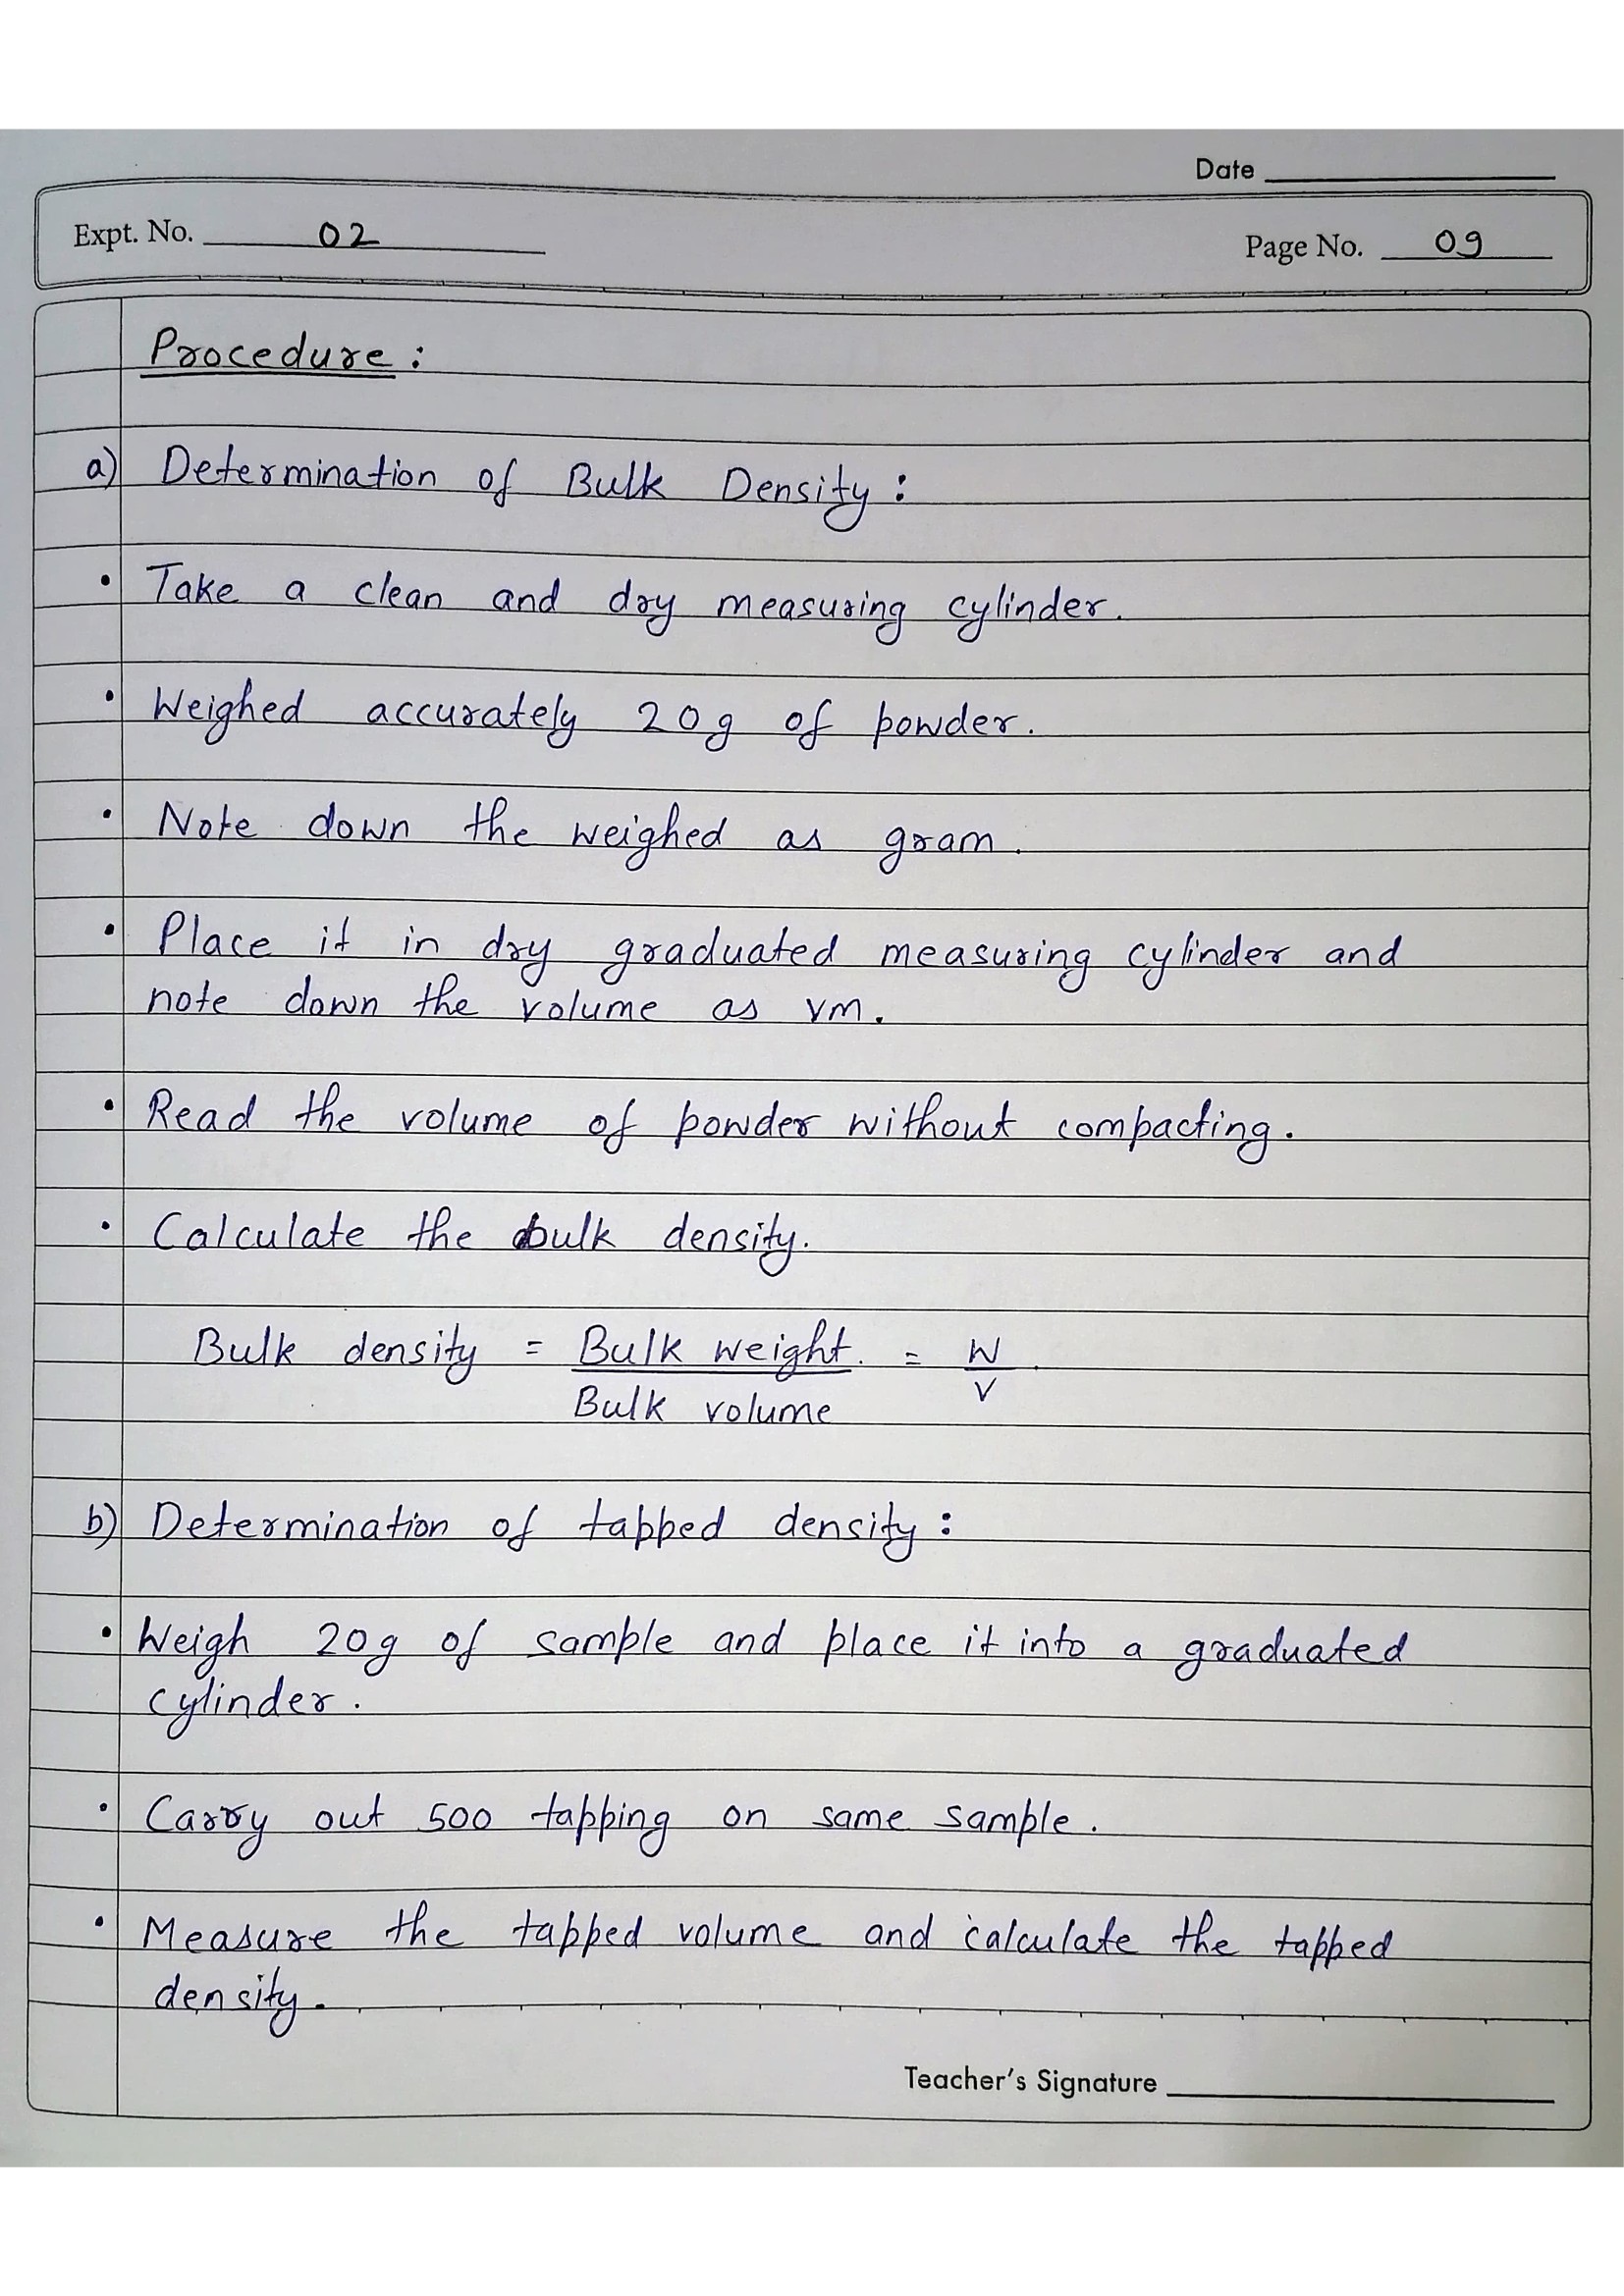 Date
Expt. No. 02
Page No. 09
Procedure :
a) Determination of Bulk Density :
• Take a clean and dry measuring cylinder.
• Weighed accurately 20g of powder.
• Note down the weighed as gram.
• Place it in dry graduated measuring cylinder and
note down the volume as vm.
• Read the volume of powder without compacting.
• Calculate the bulk density.
Bulk density = Bulk weight. = W
Bulk volume V
b) Determination of tapped density :
• Weigh 20g of sample and place it into a graduated
cylinder.
• Carry out 500 tapping on same sample.
• Measure the tapped volume and calculate the tapped
density.
Teacher's Signature